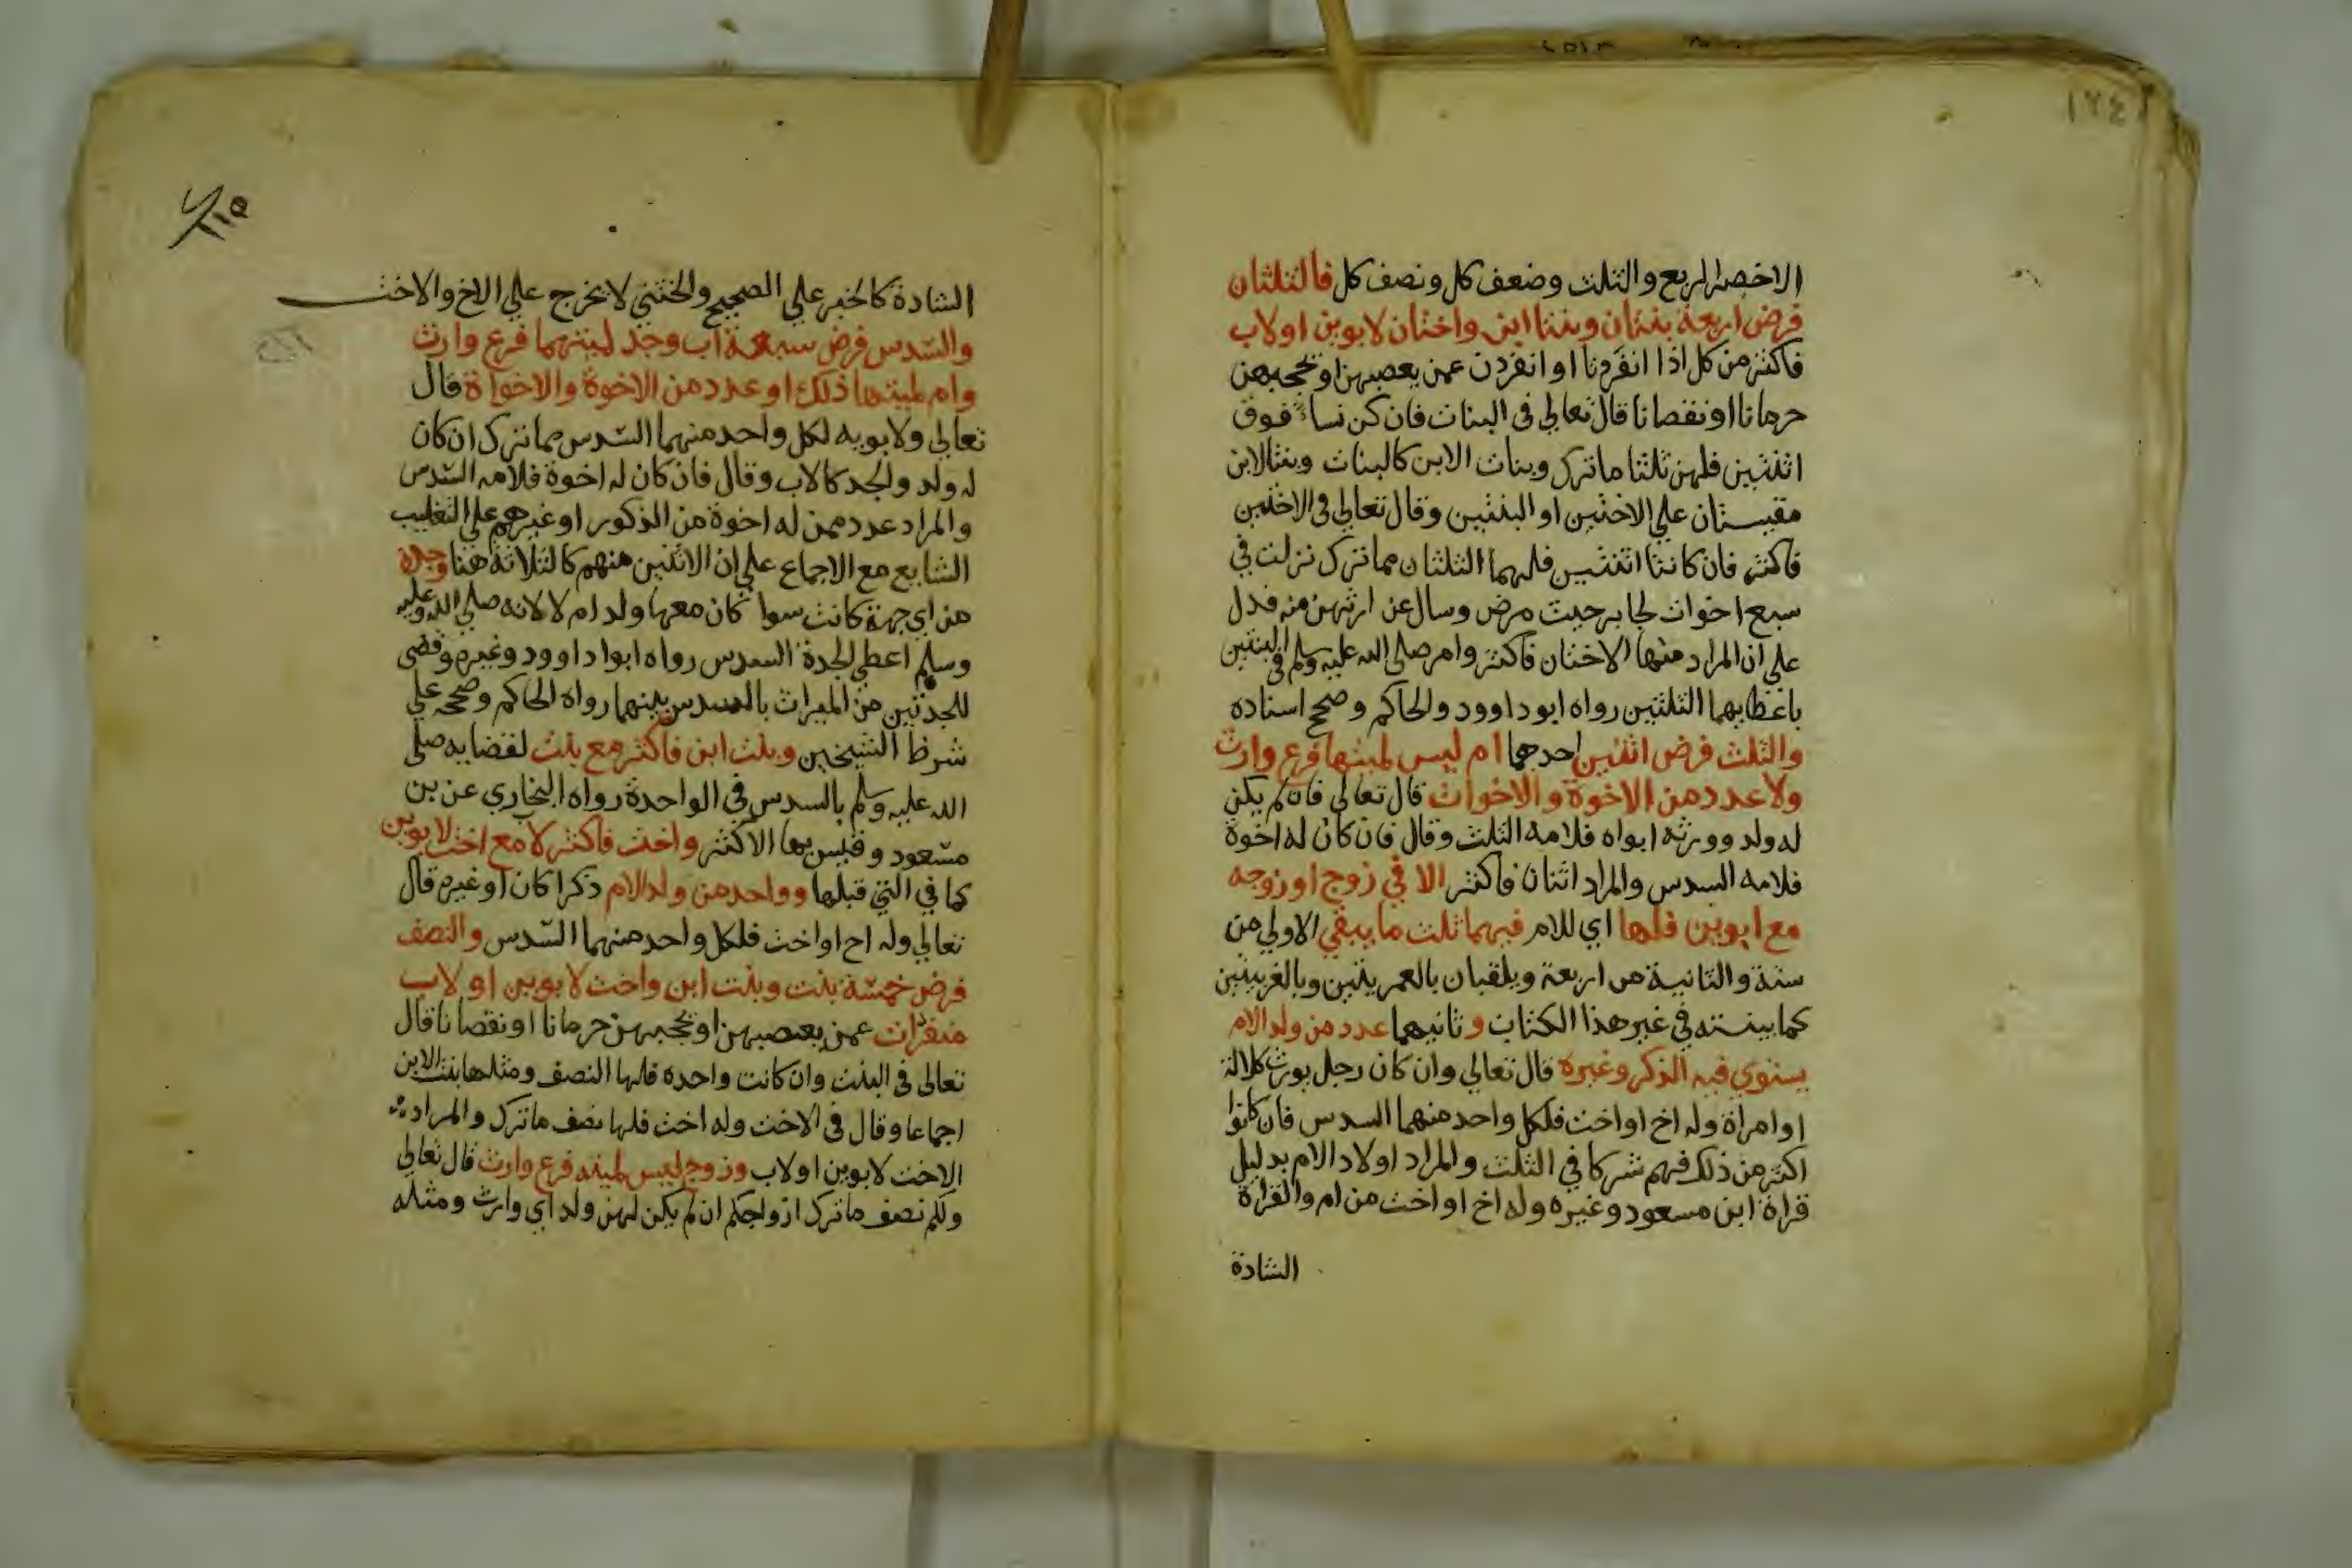 ١٧٤
الاخصر الربع والثلث وضعف كل ونصف كل فالثلثان
فرض اربعة بنتان وبنتا ابن واختان لابوين اولاب
فاكثر من كل اذا انفردتا او انفردن عمن يعصبهن او يحجبهن
حرمانا او نقصانا قال تعالي في البنات فان كن نساء فوق
اثنتين فلهن ثلثا ماترك وبنات الابن كالبنات وبنتا الابن
مقيستان علي الاختين او البنتين وقال تعالي في الاختين
فاكثر فان كانتا اثنتين فلهما الثلثان مما ترك نزلت في
سبع اخوات لجابر حيث مرض وسال عن ارثهن منه فدل
علي ان المراد منها الاختان فاكثر وامر صلي الله عليه وسلم في البنتين
باعطايهما الثلثين رواه ابو داوود والحاكم وصحح اسناده
والثلث فرض اثنين احدهما ام ليس لميتها فرع وارث
ولا عدد من الاخوة والاخوات قال تعالي فان لم يكن
له ولد وورثه ابواه فلامه الثلث وقال فان كان له اخوة
فلامه السدس والمراد اثنان فاكثر الا في زوج او زوجه
مع ابوين فلها اي للام فيهما ثلث ما يبقي الاولي من
ستة والثانية من اربعة ويلقبان بالعمريتين وبالغريبتين
كما بينته في غير هذا الكتاب و ثانيهما عدد من ولد الام
يستوي فيه الذكر وغيره قال تعالي وان كان رجل يورث كلالة
او امراة وله اخ او اخت فلكل واحد منهما السدس فان كانوا
اكثر من ذلك فهم شركا في الثلث والمراد اولاد الام بدليل
قراة ابن مسعود وغيره وله اخ او اخت من ام والقراة
الشاذة
الشاذة كالخبر علي الصحيح والخنثي لا يخرج علي الاخ والاخت
والسدس فرض سبعة اب وجد لميتهما فرع وارث
وام لميتها ذلك او عدد من الاخوة والاخوات قال
تعالي ولابويه لكل واحد منهما السدس مما ترك ان كان
له ولد والجد كالاب وقال فان كان له اخوة فلامه السدس
والمراد عدد ممن له اخوة من الذكور او غيرهم علي التغليب
الشايع مع الاجماع علي ان الاثنين منهم كالثلاثة هنا وجدة
من اي جهة كانت سوا كان معها ولد ام لا لانه صلي الله عليه
وسلم اعطي الجدة السدس رواه ابوا داوود وغيره وقضي
للجدتين من الميراث بالسدس بينهما رواه الحاكم وصححه علي
شرط الشيخين وبنت ابن فاكثر مع بنت لقضايه صلي
الله عليه وسلم بالسدس في الواحدة رواه البخاري عن بن
مسعود وقيس بها الاكثر واخت فاكثر لاب مع اخت لابوين
كما في التي قبلها وواحد من ولد الام ذكرا كان او غيره قال
تعالي وله اخ او اخت فلكل واحد منهما السدس والنصف
فرض خمسة بنت وبنت ابن واخت لابوين او لاب
منفردات عمن يعصبهن او يحجبهن حرمانا او نقصانا قال
تعالي في البنت وان كانت واحدة فلها النصف ومثلها بنت الابن
اجماعا وقال في الاخت وله اخت فلها نصف ما ترك والمراد
الاخت لابوين او لاب وزوج ليس لميته فرع وارث قال تعالي
ولكم نصف ما ترك ازواجكم ان لم يكن لهن ولد اي وارث ومثله